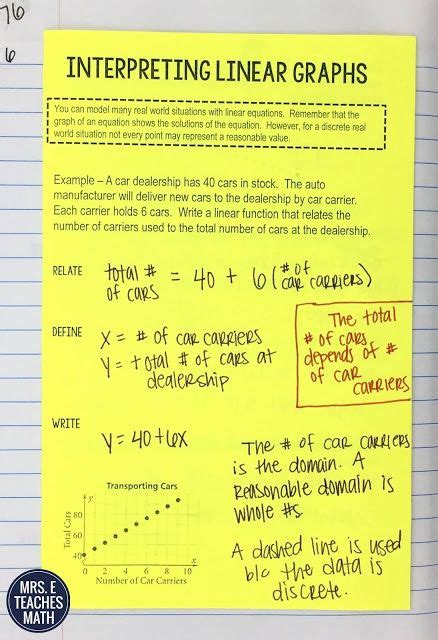 76
6
INTERPRETING LINEAR GRAPHS
You can model many real world situations with linear equations. Remember that the
graph of an equation shows the solutions of the equation. However, for a discrete real
world situation not every point may represent a reasonable value.
Example – A car dealership has 40 cars in stock. The auto
manufacturer will deliver new cars to the dealership by car carrier.
Each carrier holds 6 cars. Write a linear function that relates the
number of carriers used to the total number of cars at the dealership.
RELATE total # of cars = 40 + 6 (# of car carriers)
DEFINE X = # of car carriers
Y = total # of cars at
dealership
The total
# of cars
depends of #
of car
carriers
WRITE
Y = 40 + 6x
The # of car carriers
is the domain. A
reasonable domain is
whole #s.
A dashed line is used
b/c the data is
discrete.
Transporting Cars
y
Total Cars
80
60
40
0 2 4 6 8 10 x
Number of Car Carriers
MRS. E
TEACHES
MATH